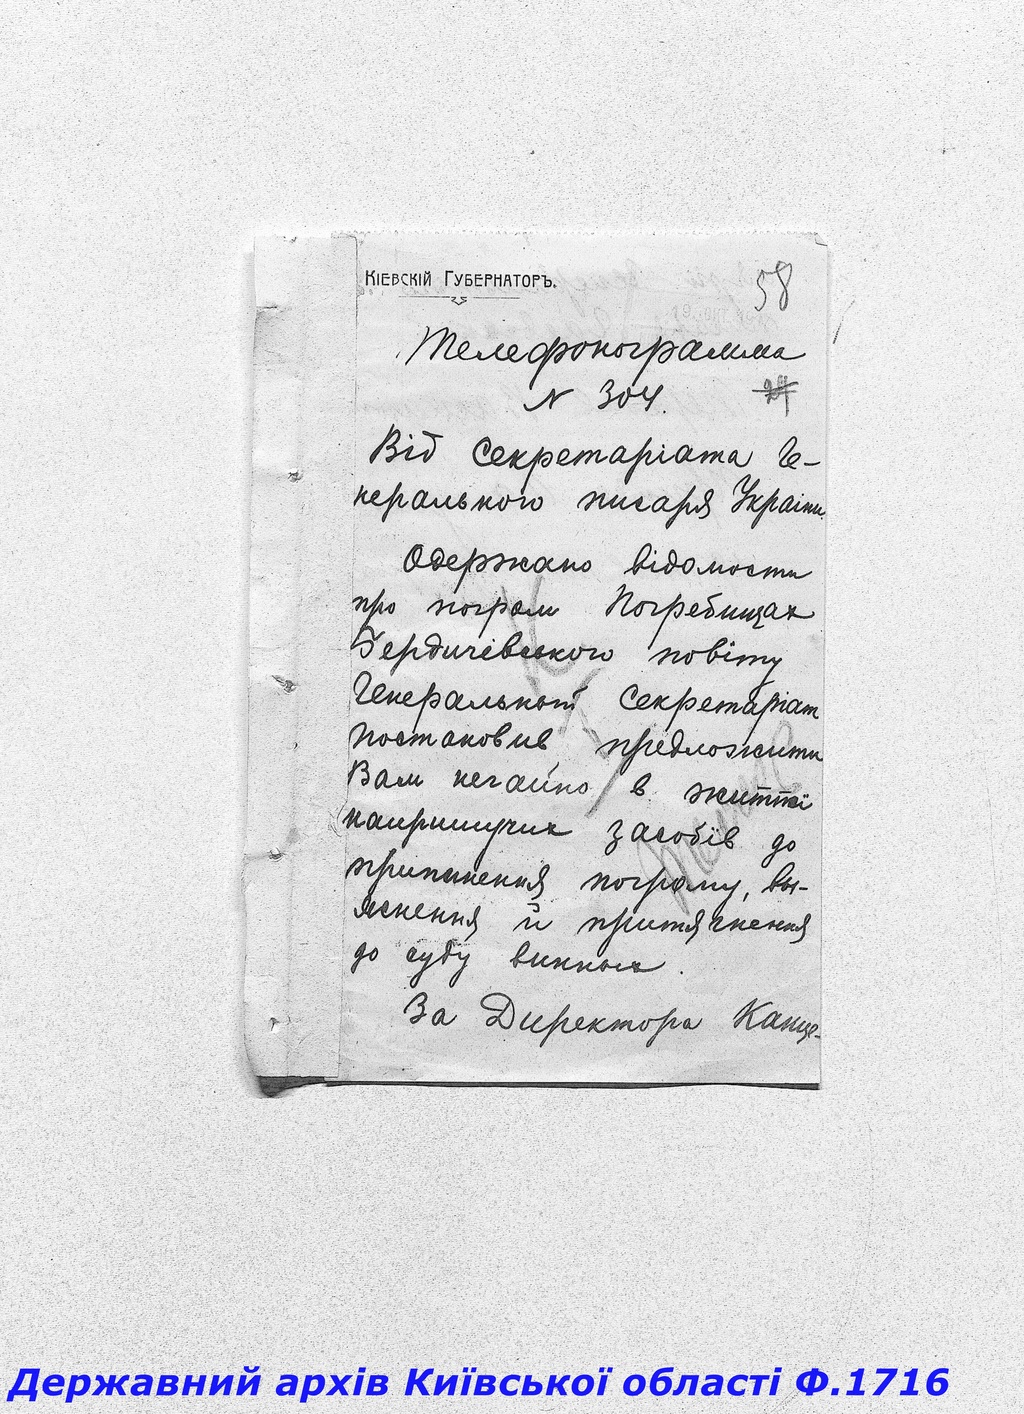 Кіевскій Губернаторъ.
58
Телефонограмма
N 304.
24
Від Секретаріата Ге-
нерального писаря України
Одержано відомости
про погром Погребищах
Бердичівського повіту
Генеральний Секретаріат
постановив предложити
Вам негайно в життї
найрішучих засобів до
припинення погрому, вы-
яснення й притягнення
до суду винных.
За Директора Канце-
Державний архів Київської області Ф.1716